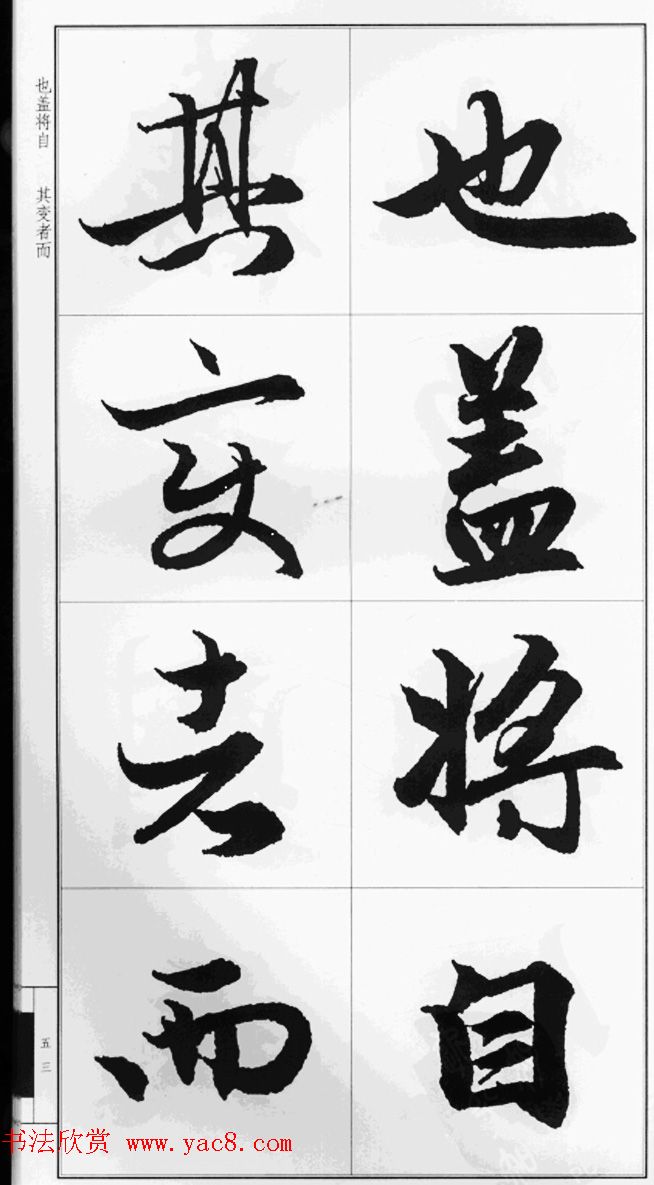 也盖将自
其变者而
也盖将自 其变者而
五三
书法欣赏 www.yac8.com